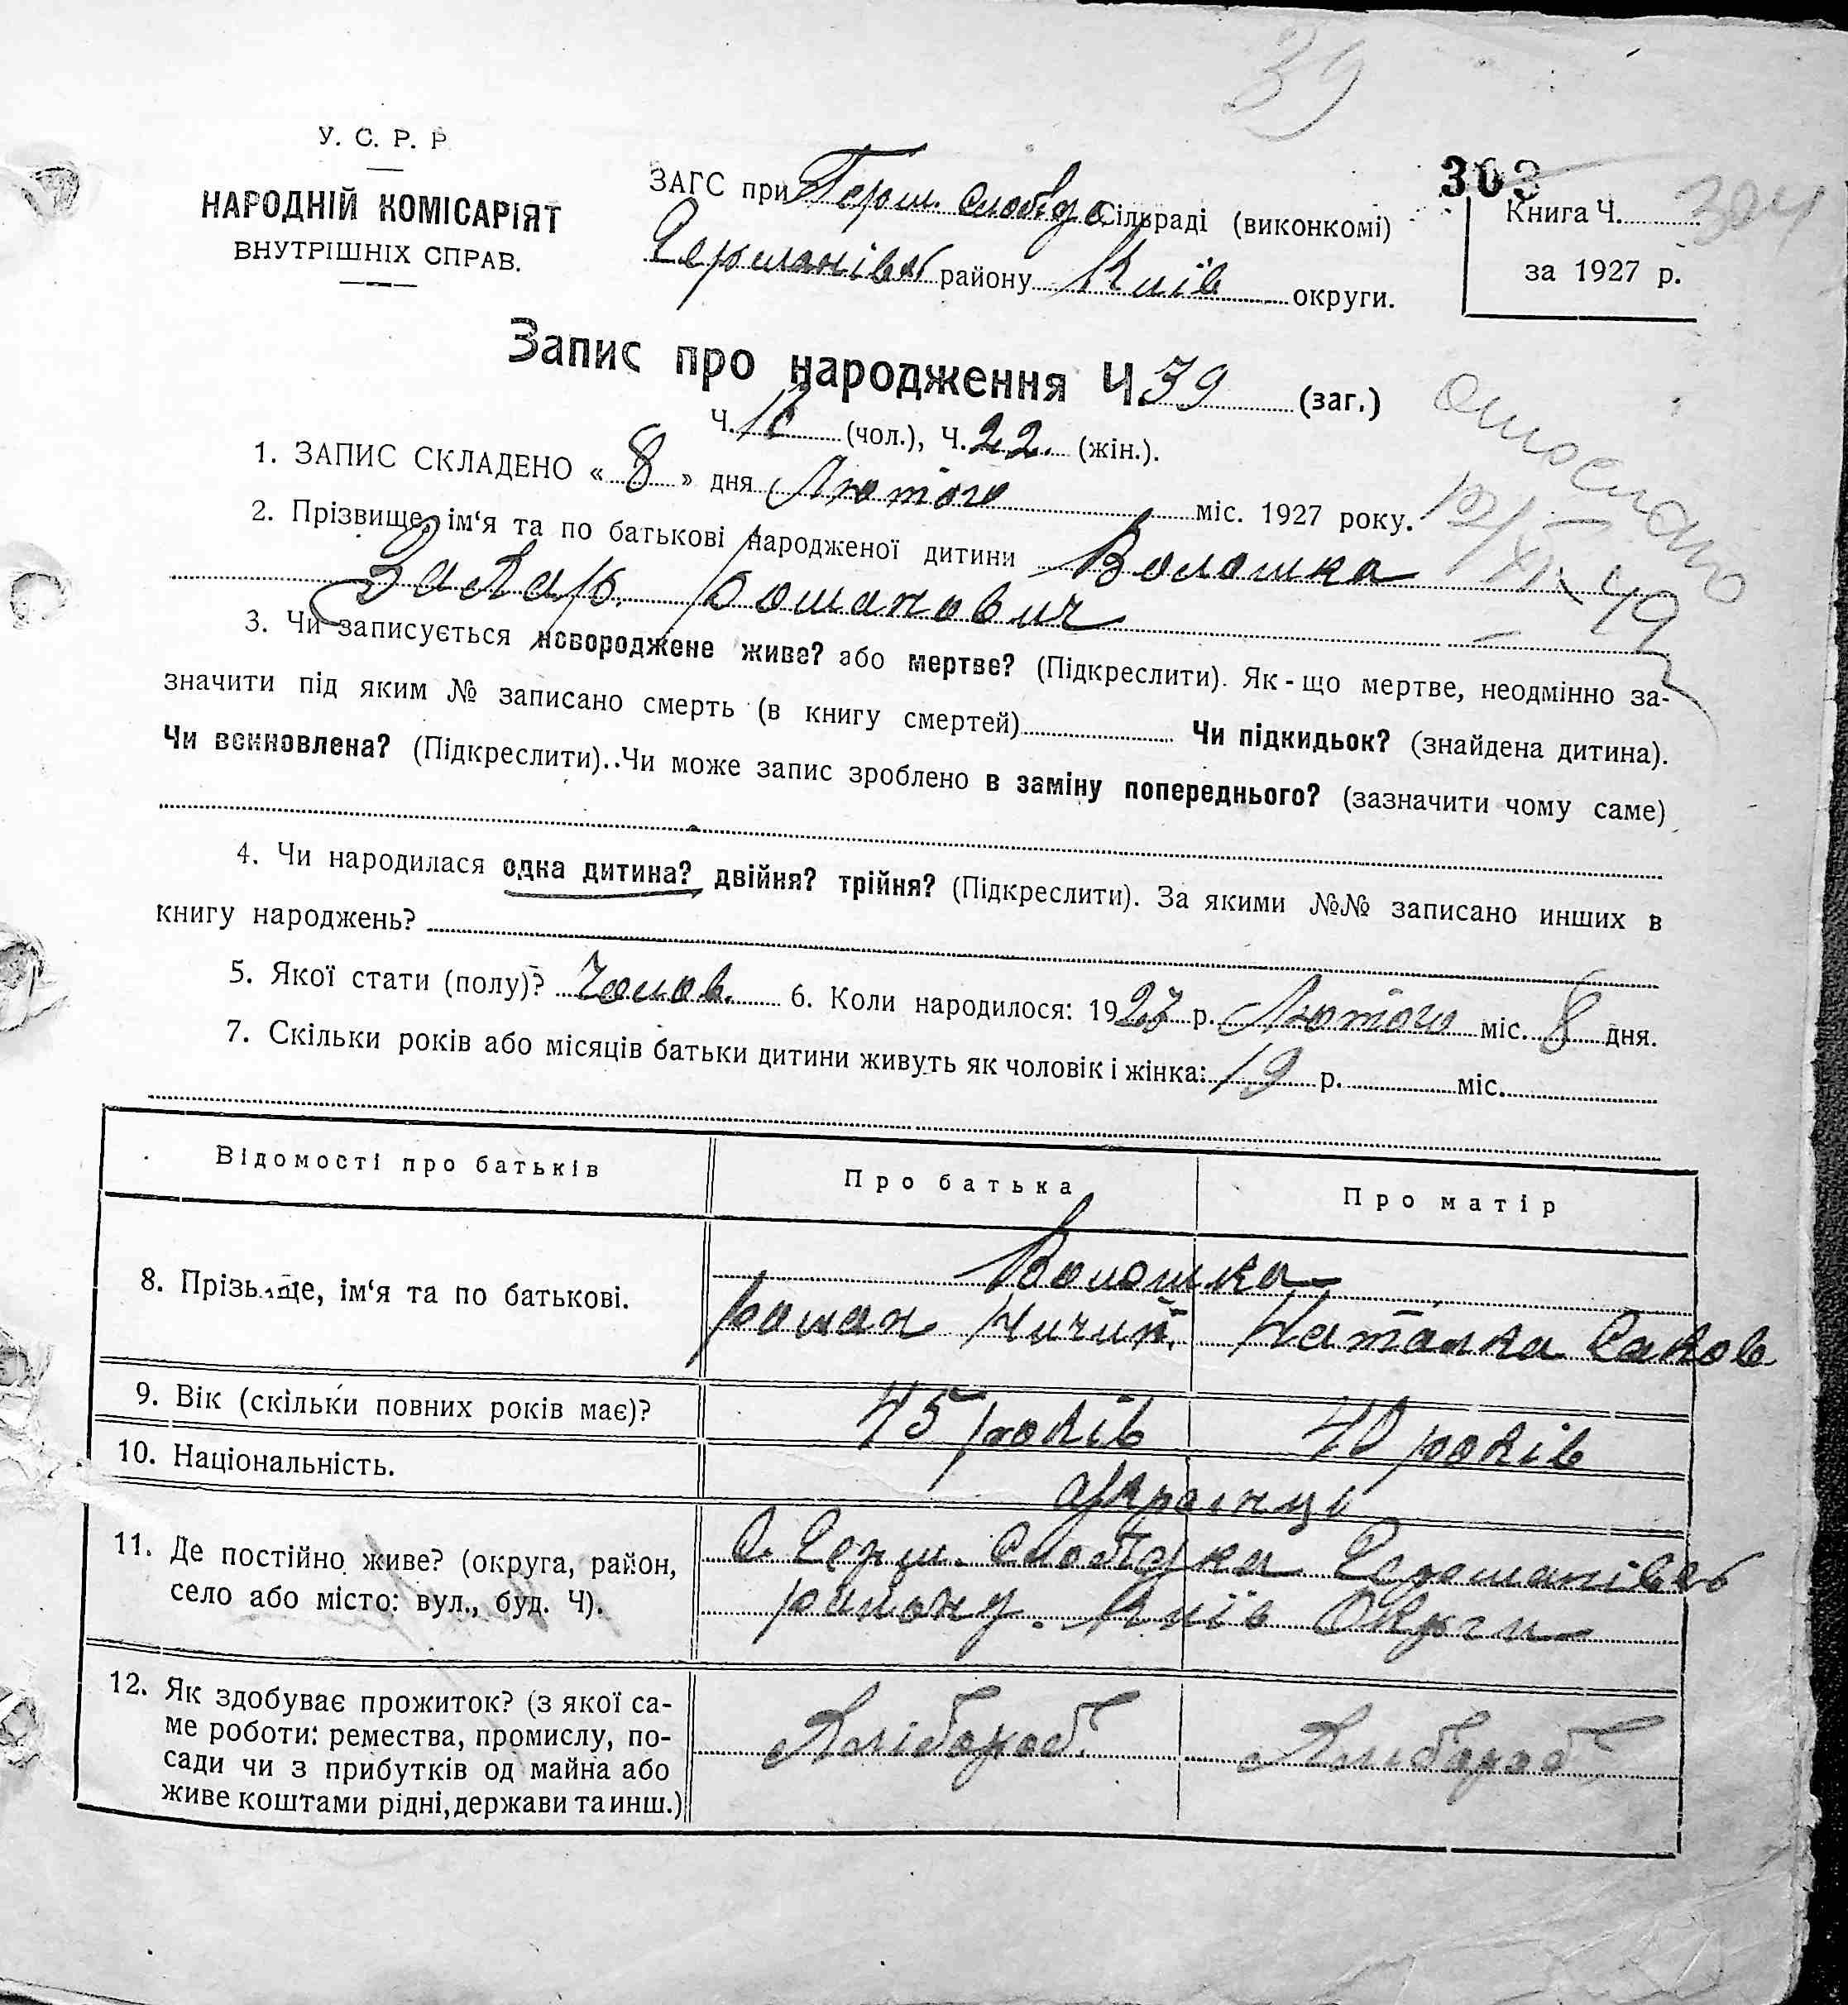 39
У. С. Р. Р.
НАРОДНІЙ КОМІСАРІЯТ
ВНУТРІШНІХ СПРАВ.
ЗАГС при Герм. Слобідс Сільраді (виконкомі)
Германівськ району Київ округи.
303
304
Книга Ч.
за 1927 р.
Запис про народження Ч 39 (заг.)
Ч. 17 (чол.), Ч. 22. (жін.).
1. ЗАПИС СКЛАДЕНО « 8 » дня Лютого міс. 1927 року.
2. Прізвище, ім'я та по батькові народженої дитини Волошка
Захар. Романович
3. Чи записується новороджене живе? або мертве? (Підкреслити). Як-що мертве, неодмінно за-
значити під яким № записано смерть (в книгу смертей) Чи підкидьок? (знайдена дитина).
Чи всиновлена? (Підкреслити). Чи може запис зроблено в заміну попереднього? (зазначити чому саме)
4. Чи народилася одна дитина? двійня? трійня? (Підкреслити). За якими №№ записано инших в
книгу народжень?
5. Якої стати (полу)? Чолов. 6. Коли народилося: 1927 р. Лютого міс. 8 дня.
7. Скільки років або місяців батьки дитини живуть як чоловік і жінка: 19 р. міс.
Відомості про батьків Про батька Про матір
8. Прізвище, ім'я та по батькові.
Волошка
Роман Ничип. Наталка Саков
9. Вік (скільки повних років має)? 45 років 40 років
10. Національність. Українці
11. Де постійно живе? (округа, район,
село або місто: вул., буд. Ч).
С. Герм. Слобідка Германівськ
району. Київ Округи
12. Як здобуває прожиток? (з якої са-
ме роботи: ремества, промислу, по-
сади чи з прибутків од майна або
живе коштами рідні, держави та инш.)
Хлібороб. Хлібороб.